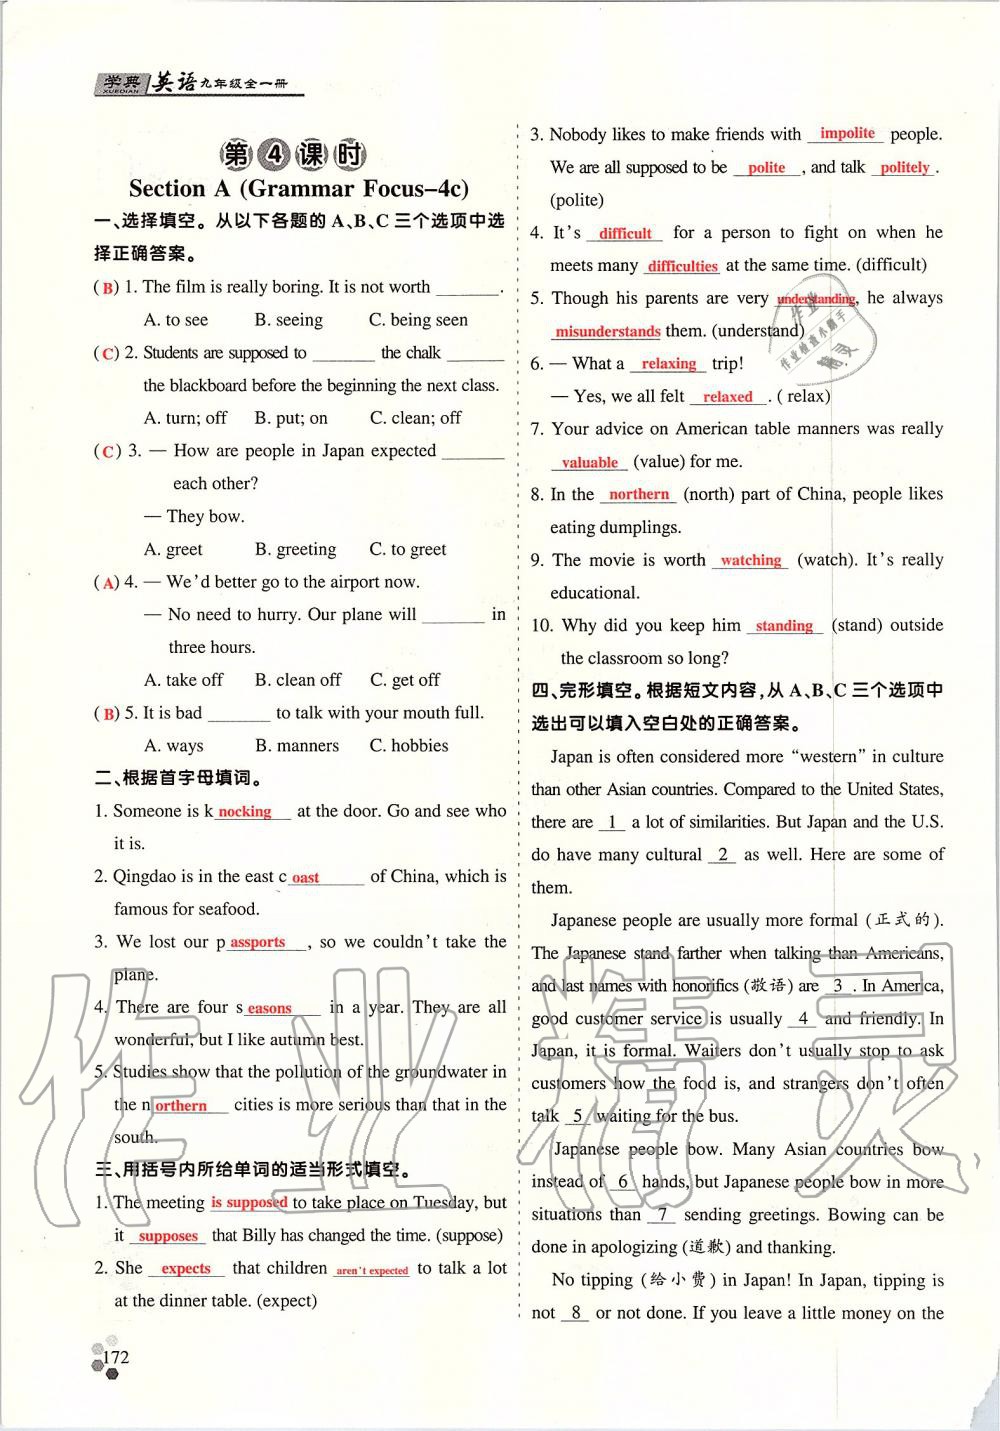 学典 XUEDIAN 英语九年级全一册
第4课时
Section A (Grammar Focus–4c)
一、选择填空。从以下各题的 A、B、C 三个选项中选
择正确答案。
( B ) 1. The film is really boring. It is not worth ________.
A. to see B. seeing C. being seen
( C ) 2. Students are supposed to ________ the chalk ________
the blackboard before the beginning the next class.
A. turn; off B. put; on C. clean; off
( C ) 3. — How are people in Japan expected ________
each other?
— They bow.
A. greet B. greeting C. to greet
( A ) 4. — We'd better go to the airport now.
— No need to hurry. Our plane will ________ in
three hours.
A. take off B. clean off C. get off
( B ) 5. It is bad ________ to talk with your mouth full.
A. ways B. manners C. hobbies
二、根据首字母填词。
1. Someone is k nocking at the door. Go and see who
it is.
2. Qingdao is in the east c oast of China, which is
famous for seafood.
3. We lost our p assports , so we couldn't take the
plane.
4. There are four s easons in a year. They are all
wonderful, but I like autumn best.
5. Studies show that the pollution of the groundwater in
the n orthern cities is more serious than that in the
south.
三、用括号内所给单词的适当形式填空。
1. The meeting is supposed to take place on Tuesday, but
it supposes that Billy has changed the time. (suppose)
2. She expects that children aren't expected to talk a lot
at the dinner table. (expect)
172
3. Nobody likes to make friends with impolite people.
We are all supposed to be polite , and talk politely .
(polite)
4. It's difficult for a person to fight on when he
meets many difficulties at the same time. (difficult)
5. Though his parents are very understanding, he always
misunderstands them. (understand)
6. — What a relaxing trip!
— Yes, we all felt relaxed . ( relax)
7. Your advice on American table manners was really
valuable (value) for me.
8. In the northern (north) part of China, people likes
eating dumplings.
9. The movie is worth watching (watch). It's really
educational.
10. Why did you keep him standing (stand) outside
the classroom so long?
四、完形填空。根据短文内容,从 A、B、C 三个选项中
选出可以填入空白处的正确答案。
Japan is often considered more "western" in culture
than other Asian countries. Compared to the United States,
there are 1 a lot of similarities. But Japan and the U.S.
do have many cultural 2 as well. Here are some of
them.
Japanese people are usually more formal (正式的).
The Japanese stand farther when talking than Americans,
and last names with honorifics (敬语) are 3 . In America,
good customer service is usually 4 and friendly. In
Japan, it is formal. Waiters don't usually stop to ask
customers how the food is, and strangers don't often
talk 5 waiting for the bus.
Japanese people bow. Many Asian countries bow
instead of 6 hands, but Japanese people bow in more
situations than 7 sending greetings. Bowing can be
done in apologizing (道歉) and thanking.
No tipping (给小费) in Japan! In Japan, tipping is
not 8 or not done. If you leave a little money on the
作业精灵
作业
作业检查小助手
精灵